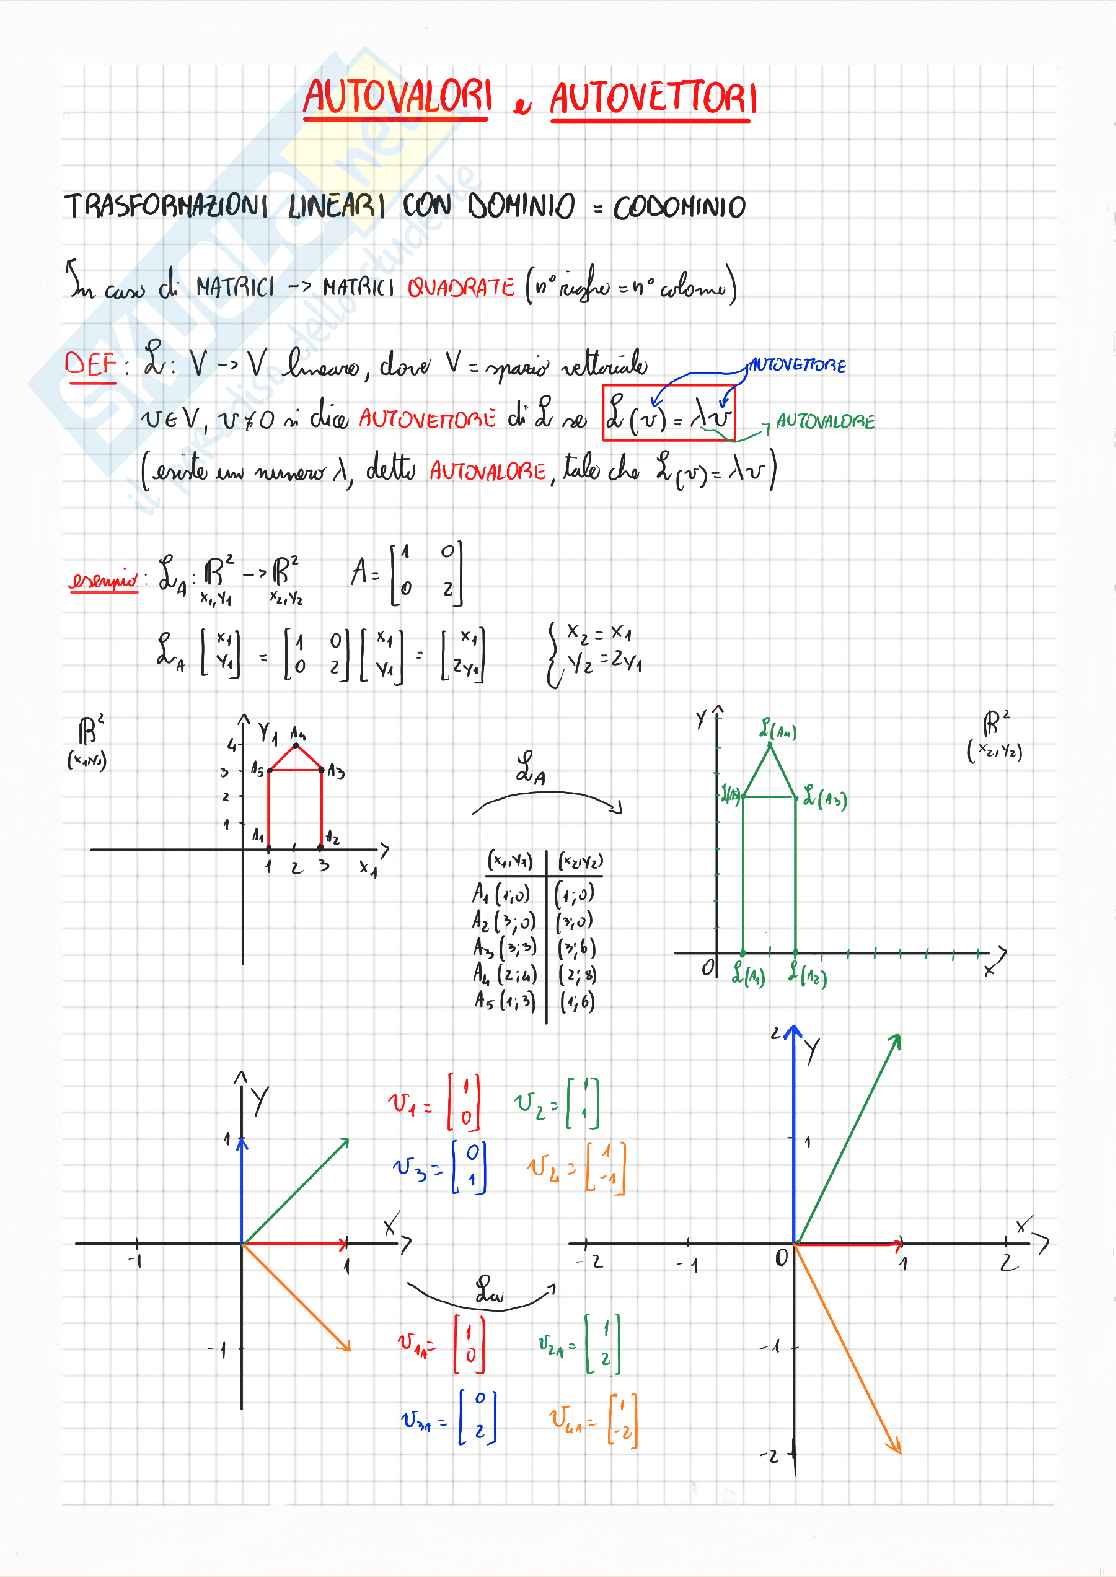 AUTOVALORI e AUTOVETTORI
TRASFORMAZIONI LINEARI CON DOMINIO = CODOMINIO
In caso di MATRICI -> MATRICI QUADRATE (n° righe = n° colonne)
DEF: ℒ: V -> V lineare, dove V = spazio vettoriale
AUTOVETTORE
v ∈ V, v ≠ 0 si dice AUTOVETTORE di ℒ se ℒ(v) = λv
AUTOVALORE
(esiste un numero λ, detto AUTOVALORE, tale che ℒ(v) = λv)
esempio: ℒA: ℝ² -> ℝ² A = [1 0; 0 2]
x1,y1 x2,y2
ℒA [x1; y1] = [1 0; 0 2] [x1; y1] = [x1; 2y1] { x2 = x1
y2 = 2y1
ℝ²
(x1,y1)
Y1
4
3
2
1
A4
A5
A3
A1
A2
1 2 3 x1
ℒA
(x1,y1) (x2,y2)
A1 (1;0) (1;0)
A2 (3;0) (3;0)
A3 (3;3) (3;6)
A4 (2;4) (2;8)
A5 (1;3) (1;6)
Y
ℒ(A4)
ℒ(A5)
ℒ(A3)
ℝ²
(x2,y2)
0
ℒ(A1)
ℒ(A2)
x
Y
1
-1
1
-1
X
v1 = [1; 0] v2 = [1; 1]
v3 = [0; 1] v4 = [1; -1]
ℒa
v1A = [1; 0] v2A = [1; 2]
v3A = [0; 2] v4A = [1; -2]
2
Y
1
-2 -1 0 1 2
X
-1
-2
SKUOLA.net
il paradiso dello studente